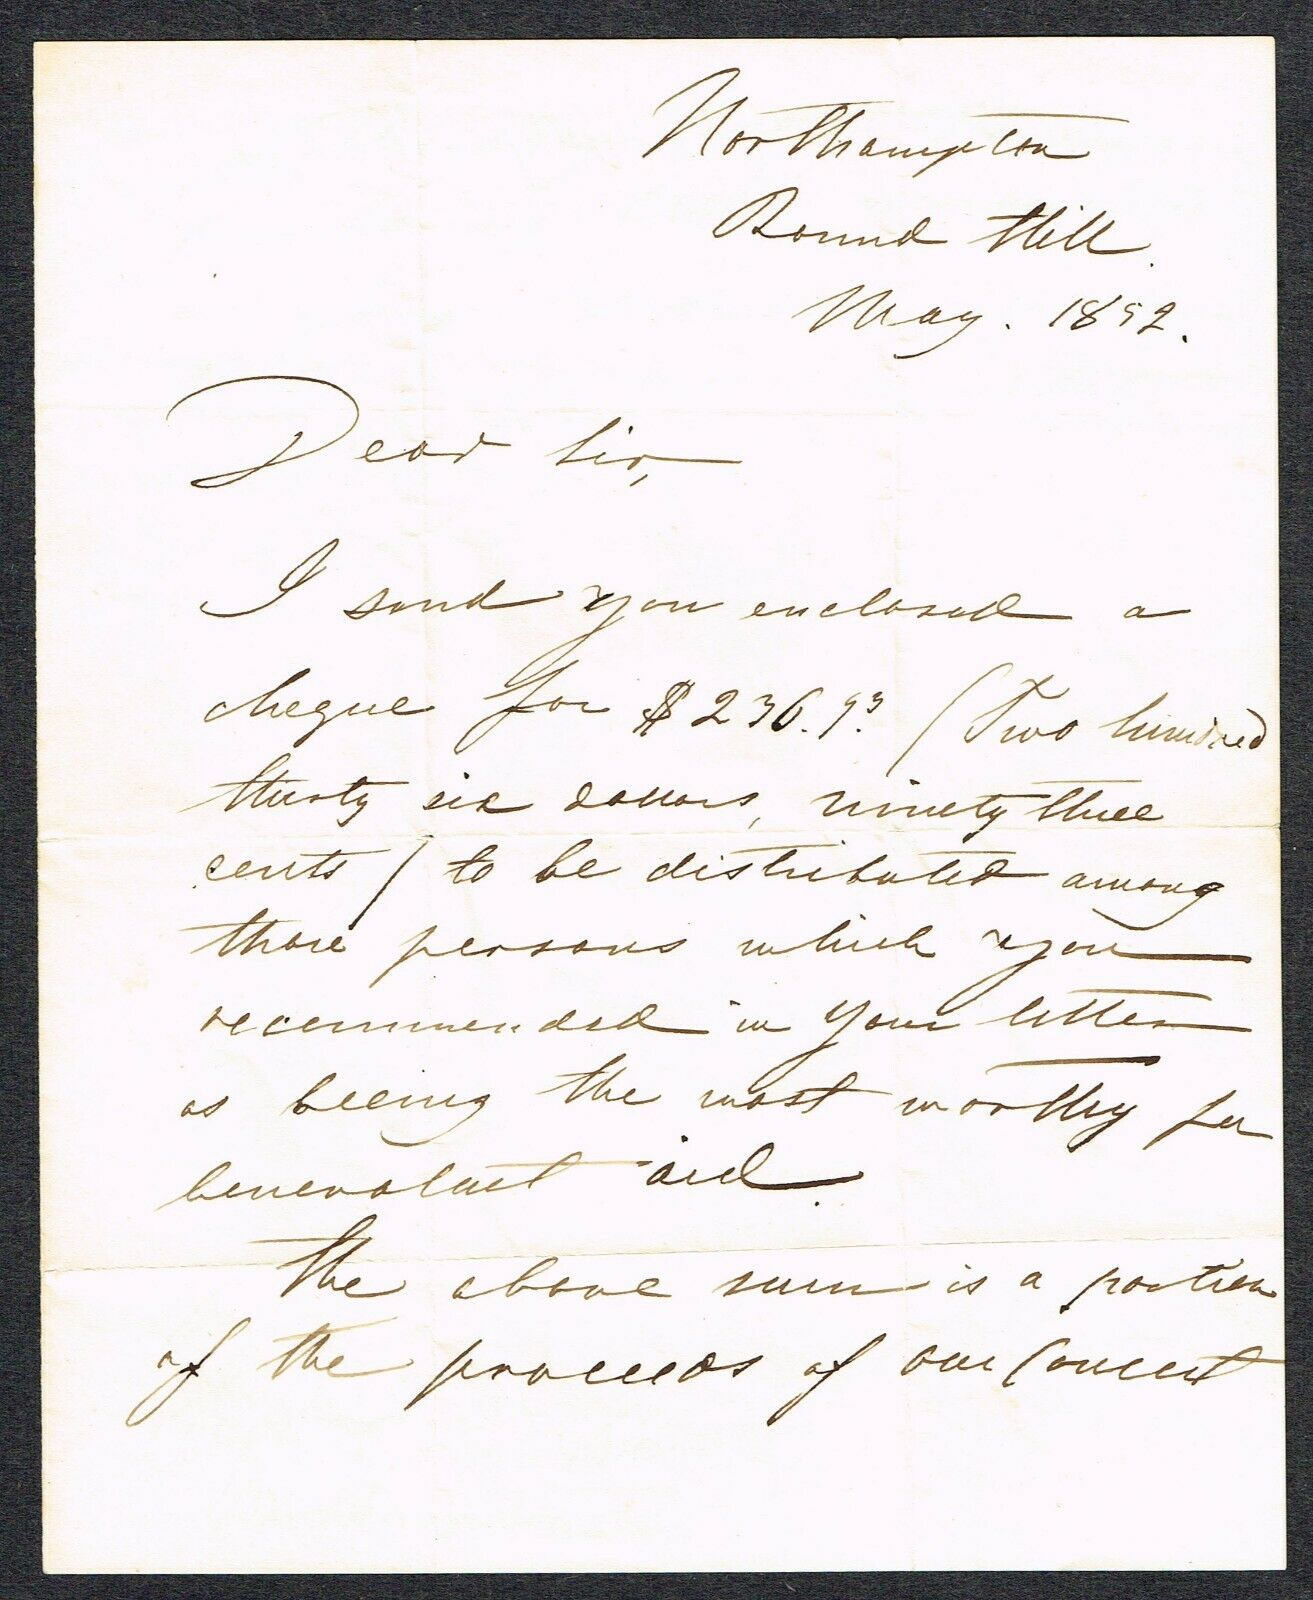 Northampton
Round Hill.
May. 1852.
Dear Sir,
I send you enclosed a
cheque for $236.93 (Two hundred
thirty six dollars, ninety three
cents) to be distributed among
those persons which you
recommended in your letter
as beeing the most worthy for
benevolent aid.
The above sum is a portion
of the proceeds of our Concert